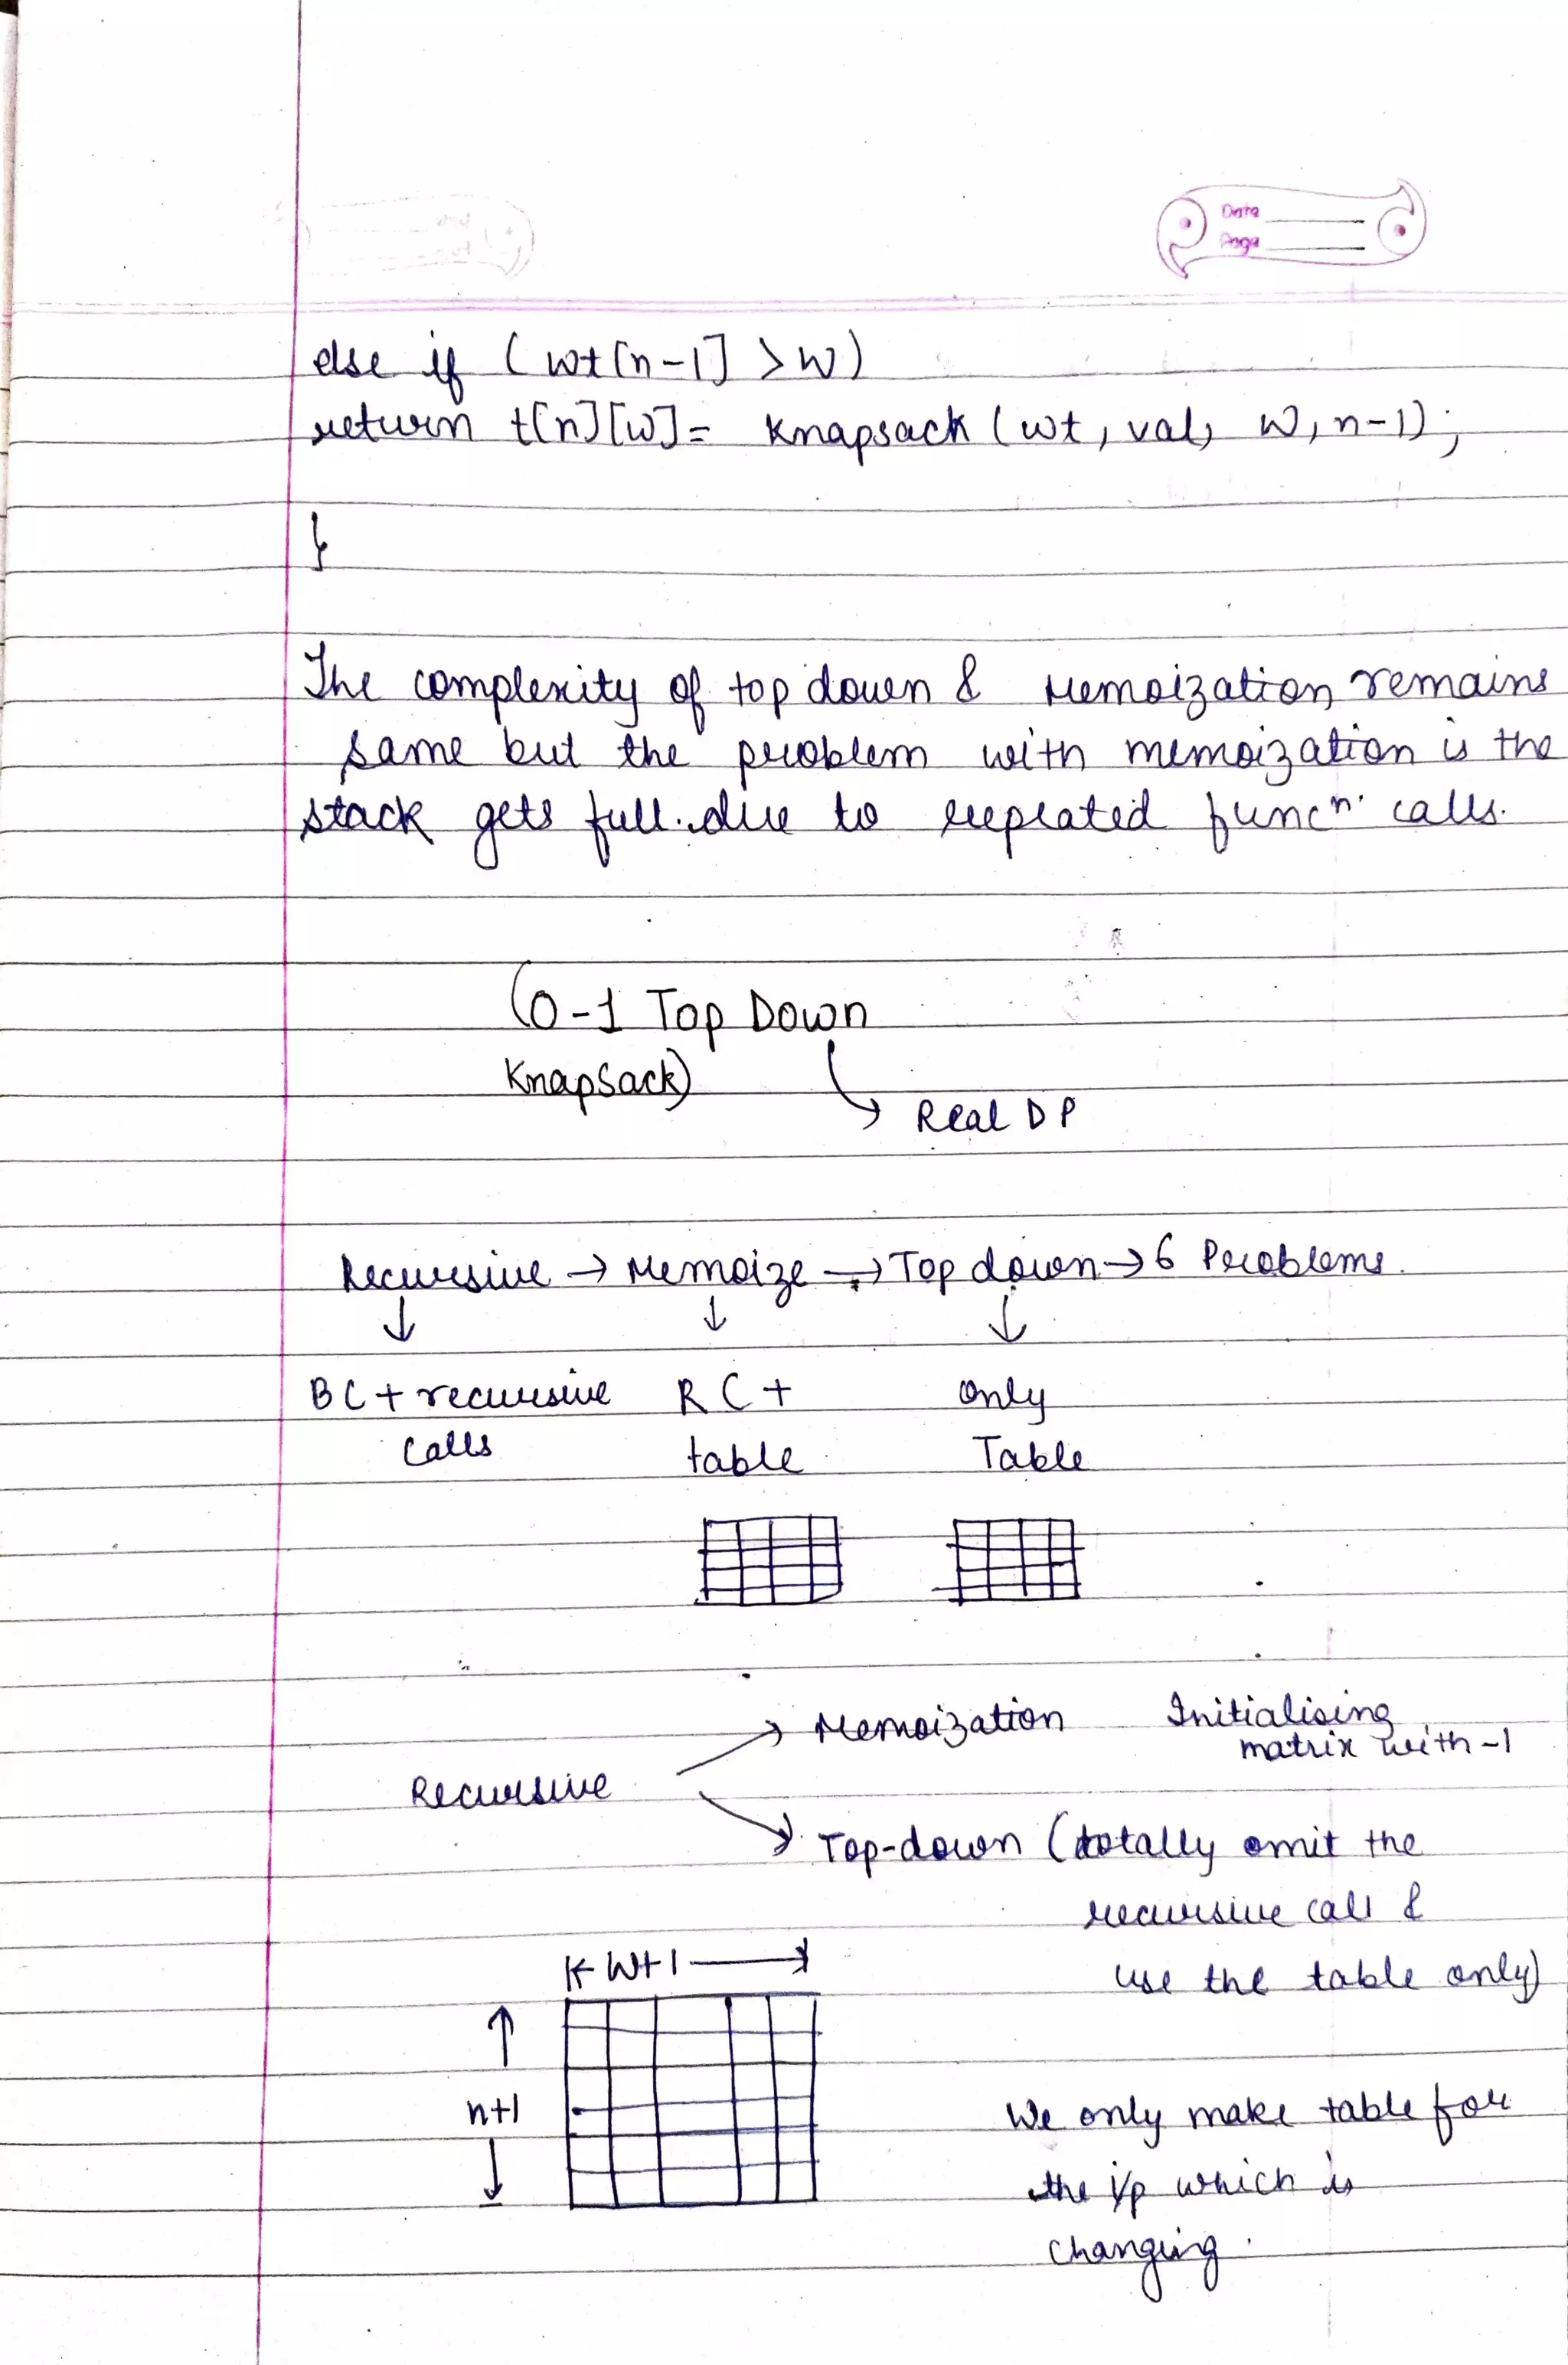 Date
Page
else if (wt[n-1] > W)
return t[n][w] = Knapsack (wt, val, W, n-1);
}
The complexity of top down & Memoization remains
same but the problem with memoization is the
stack gets full due to repeated funcⁿ. calls.
(0-1 Top Down
KnapSack)
→ Real DP
Recursive → Memoize → Top down → 6 Problems.
↓ ↓ ↓
BC + recursive RC + only
calls table Table
→ Memoization Initialising
matrix with -1
Recursive
→ Top-down (totally omit the
recursive call &
use the table only)
W+1
n+1
We only make table for
the i/p which is
changing.